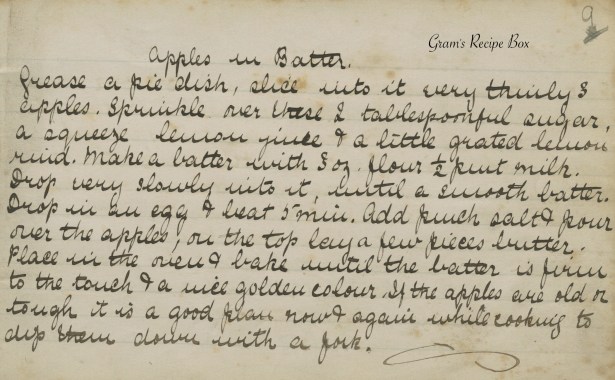 9
Gram's Recipe Box
Apples in Batter.
Grease a pie dish, slice into it very thinly 3
apples. Sprinkle over these 2 tablespoonful sugar,
a squeeze lemon juice & a little grated lemon
rind. Make a batter with 3 oz. flour ½ pint milk.
Drop very slowly into it, until a smooth batter.
Drop in an egg & beat 5 min. Add pinch salt & pour
over the apples, on the top lay a few pieces butter.
Place in the oven & bake until the batter is firm
to the touch & a nice golden colour. If the apples are old or
tough it is a good plan now & again while cooking to
dip them down with a fork.